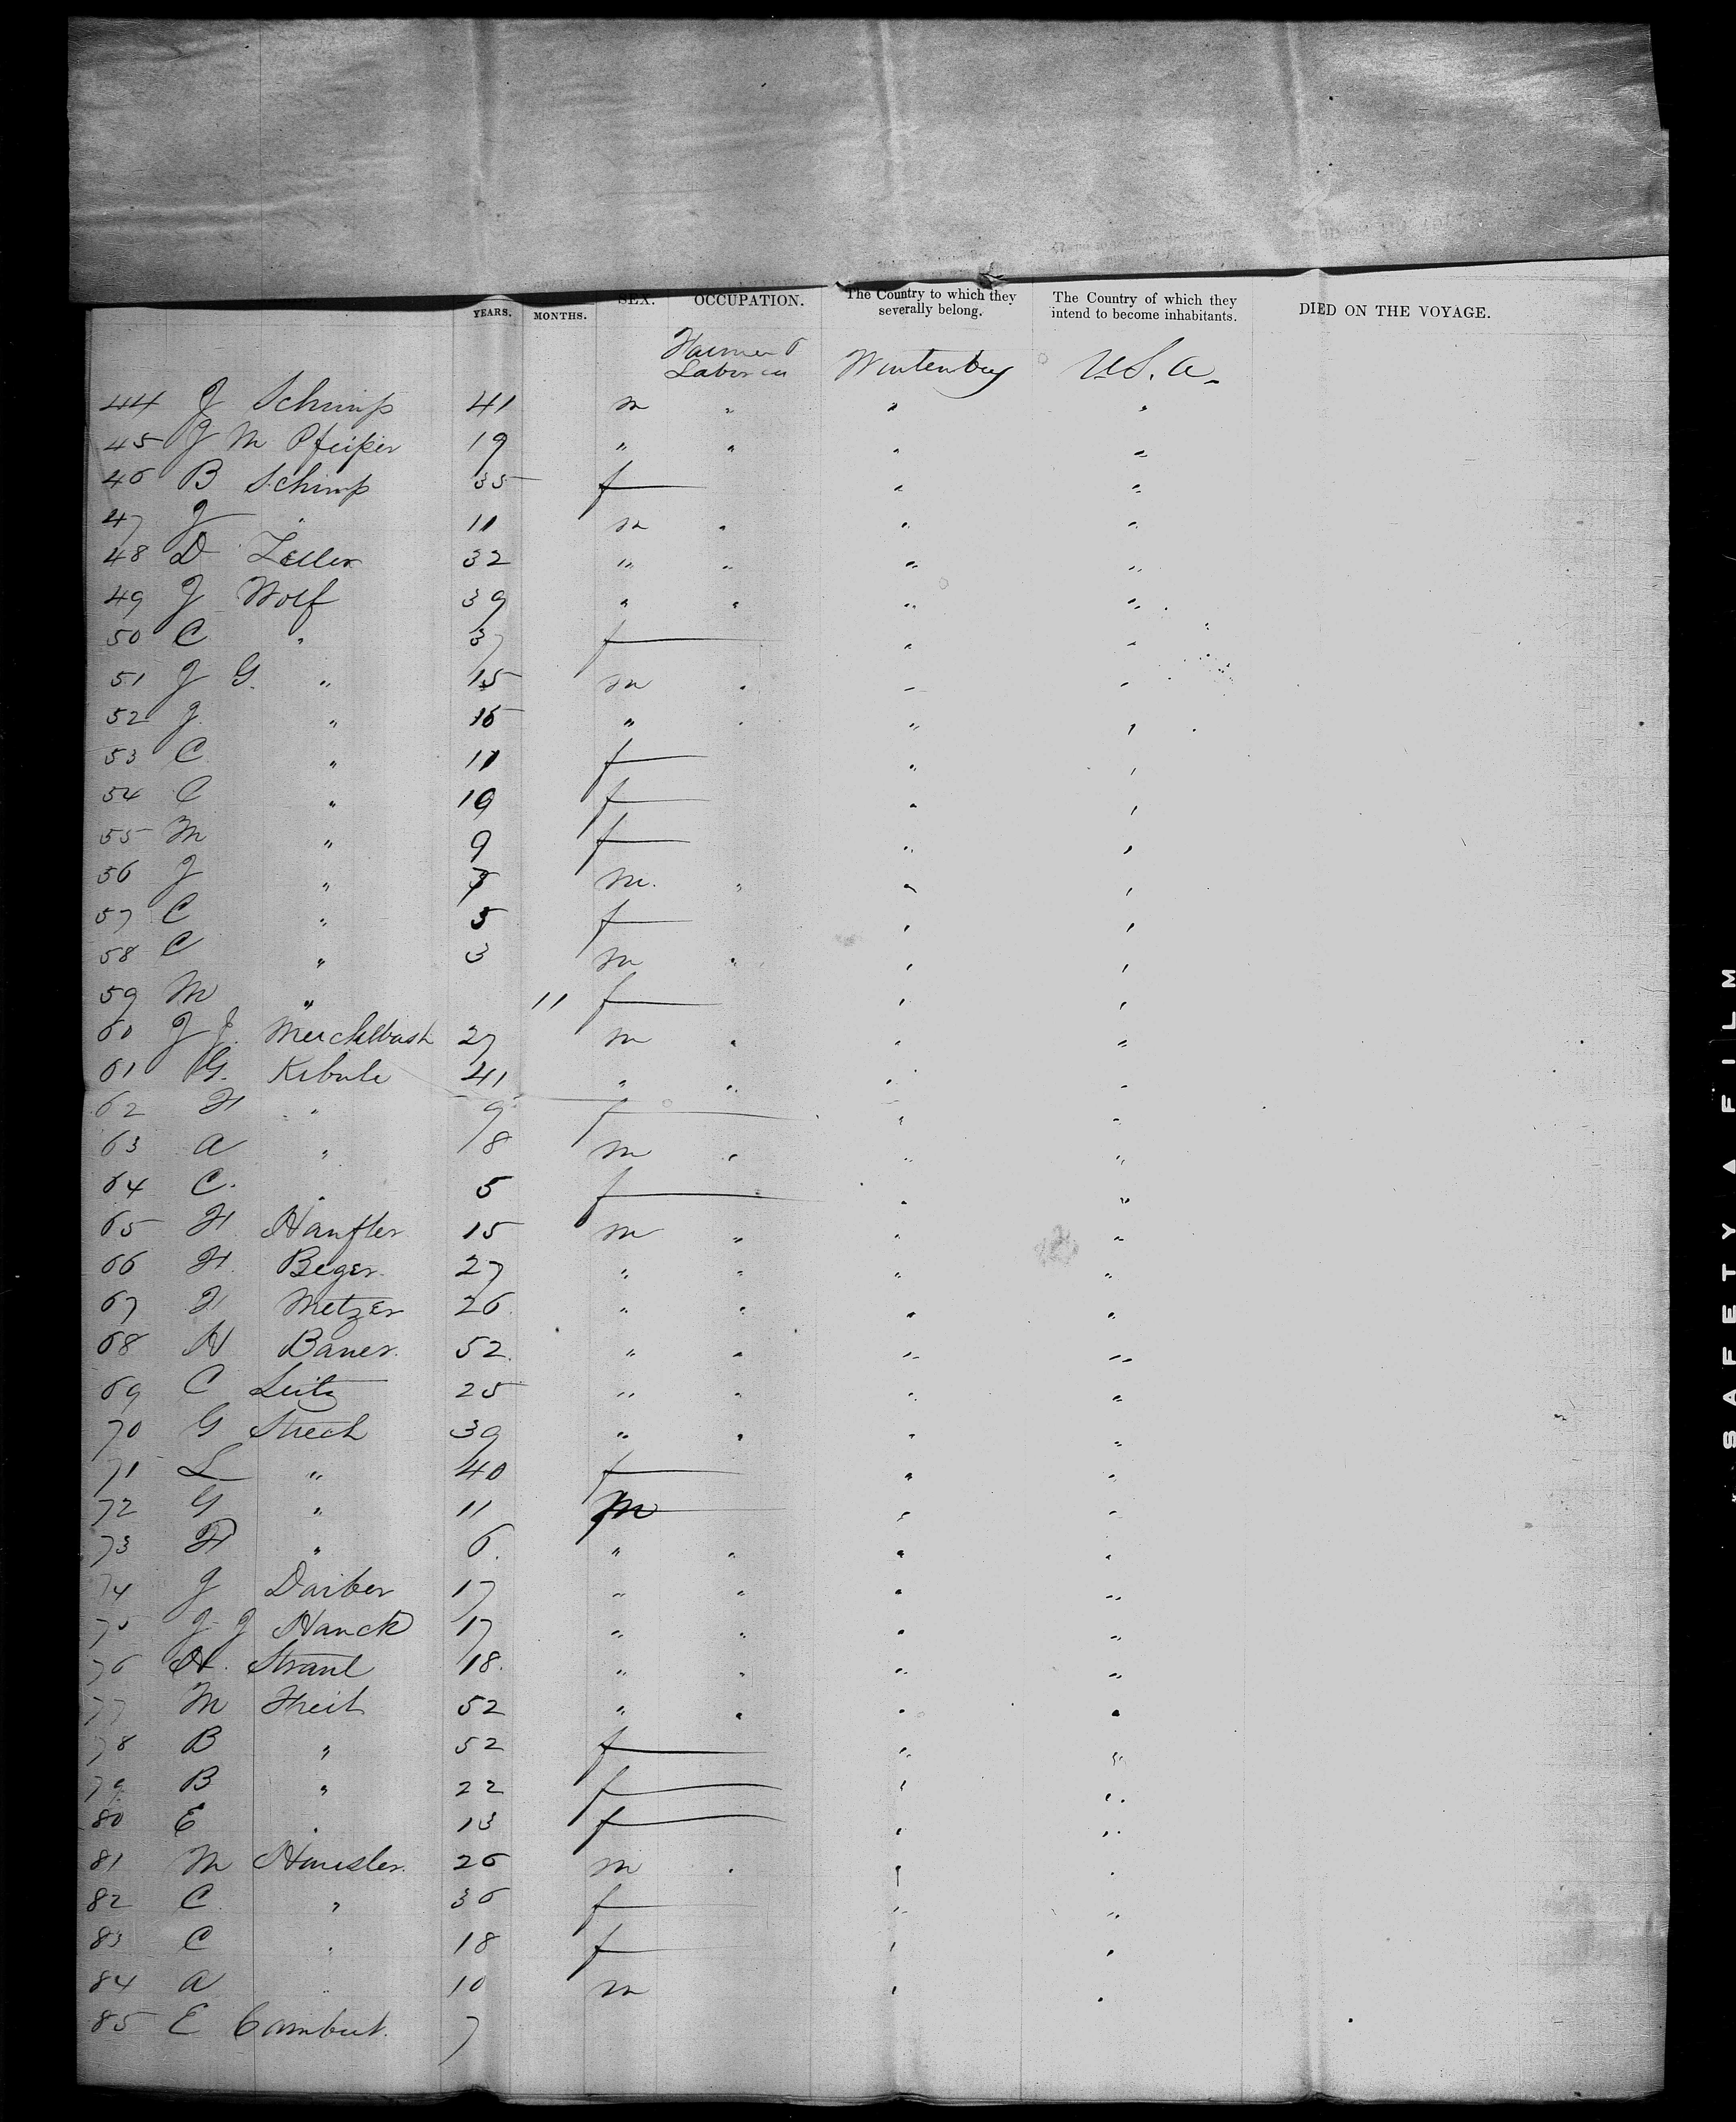 YEARS. MONTHS. SEX. OCCUPATION. The Country to which they severally belong. The Country of which they intend to become inhabitants. DIED ON THE VOYAGE.
Farmer &
Laborer Wurtenberg U.S.A.
44 J Schimp 41 m " " "
45 J M Pfeifer 19 " " " "
46 B Schimp 35 f " "
47 J " 11 m " " "
48 D Zeller 32 " " " "
49 J Wolf 39 " " " "
50 C " 37 f " "
51 J G. " 15 m " " "
52 J. " 15 " " " "
53 C " 11 f " "
54 C " 10 f " "
55 M " 9 f " "
56 J " 7 m. " " "
57 C " 5 f " "
58 C " 3 m " " "
59 M " 11 f " "
60 J J. 27 m " " "
61 G. Kibule 41 " " " "
62 F " 9 f " "
63 A " 8 m " " "
64 C. " 5 f " "
65 F Hanfler 15 m " " "
66 F. Beger. 27 " " " "
67 F Metzer 26. " " " "
68 H Baner. 52. " " " "
69 C Leitz 25 " " " "
70 G Strech 39 " " " "
71 L " 40 f " "
72 G " 11 m " "
73 F " 6. " " " "
74 J Daiber 17 " " " "
75 J J Hanck 17 " " " "
76 H. Straul 18. " " " "
77 M Freit 52 " " " "
78 B " 52 f " "
79 B " 22 f " "
80 E " 13 f " "
81 M 26 m " " "
82 C " 36 f " "
83 C " 18 f " "
84 A " 10 m " "
85 E Cambeut. 7
SAFETY FILM